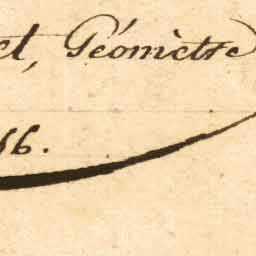 et, Géomètre
56.